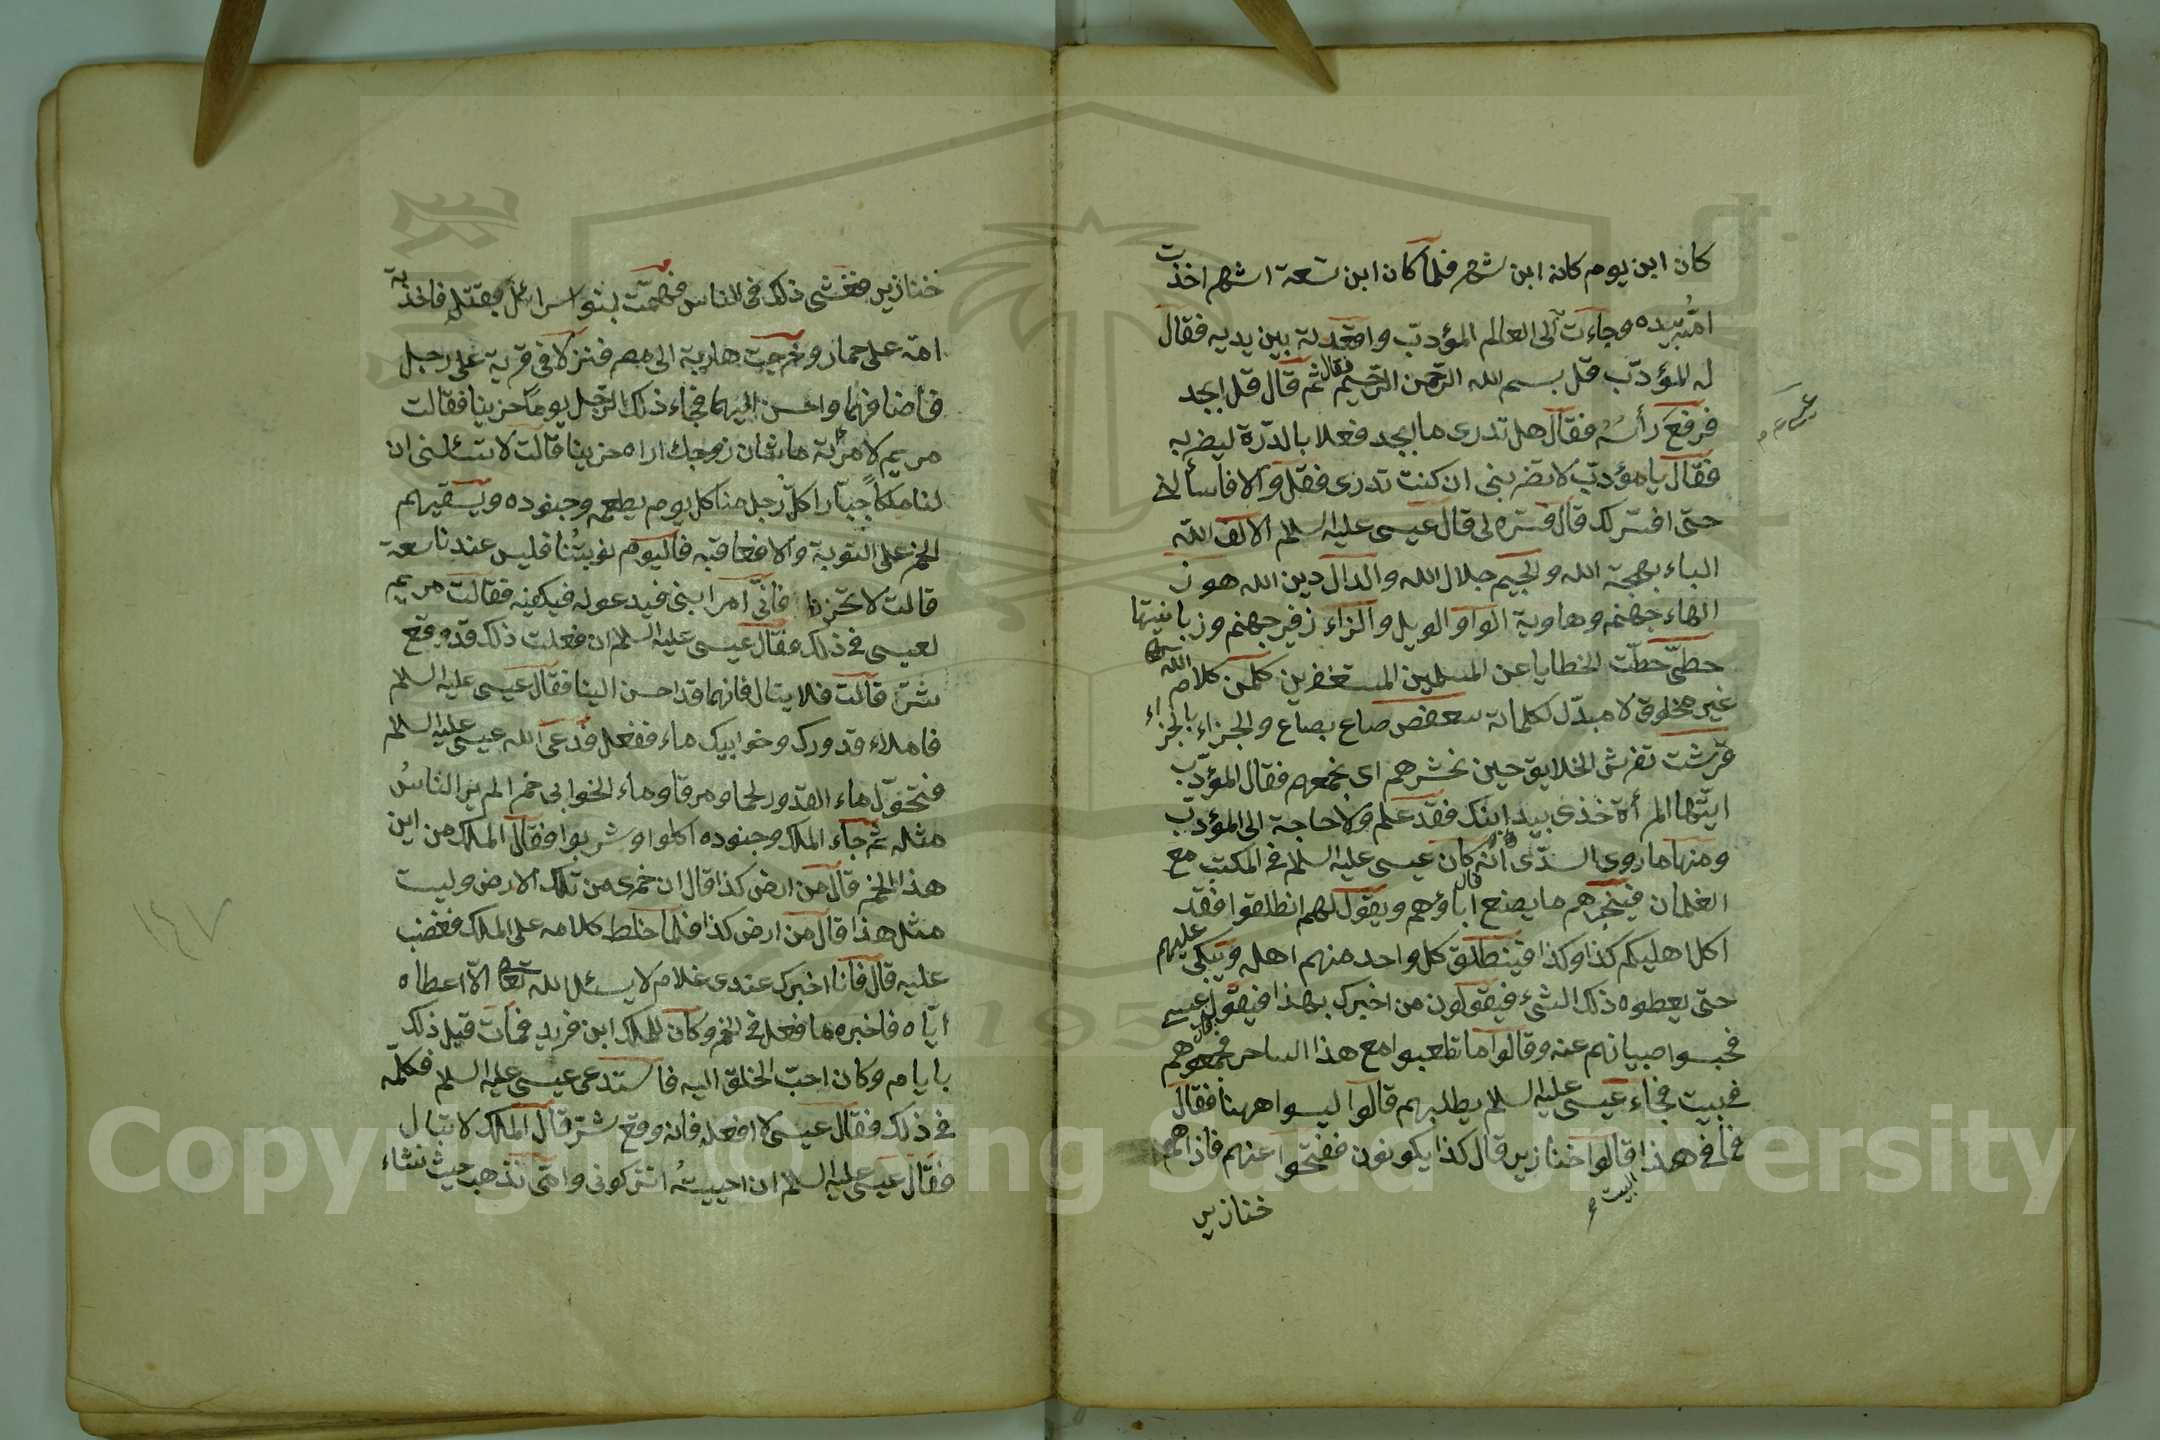 كان ابن يوم كانه ابن شهر فلما كان ابن تسعة اشهر اخذت
امّه بيده وجاءت الى العالم المؤدّب واقعدته بين يديه فقال
له المؤدّب قل بسم الله الرّحمن الرّحيم فقال ثم قال قل ابجد
فرفع رأسه فقال هل تدرى ما ابجد فعلا بالدّرة ليضربه
عيسى م
فقال يا مؤدّب لا تضربنى ان كنت تدرى فقل والا فاسألنى
حتى افسّر لك قال فسّره لى قال عيسى عليه السلم الالف الله
الباء بهجة الله والجيم جلال الله والدال دين الله هوز
الهاء جهنم وهاوية الواو الويل والزاء زفير جهنم وزبانيتها
حطىّ حطّت الخطايا عن المسلمين المستغفرين كلمن كلام الله
غير مخلوق لا مبدّل لكلماته سعفص صاع بصاع والجزاء بالجزاء
قرشت تقرش الخلايق حين نحشرهم اى نجمعهم فقال المؤدّب
ايتها المرأة خذى بيد ابنك فقد علم ولا حاجة الى المؤدّب
ومنها ما روى السدّى انه كان عيسى عليه السلم فى المكتب مع
الغلمان فيخبرهم ما يصنع اباؤهم ويقول لهم انطلقوا فقد
اكل اهليكم كذا وكذا فينطلق كل واحد منهم اهله ويبكى عليهم
حتى يعطوه ذلك الشىء فيقولون من اخبرك بهذا فيقول عيسى
فحبسوا صبيانهم عنه وقالوا ما تلعبوا مع هذا الساحر فجمعوهم
فى بيت فجاء عيسى عليه السلم يطلبهم قالوا ليسوا ههنا فقال
فما فى هذا قالوا خنازير قال كذا يكونون ففتحوا عنهم فاذا هم
البيت
خنازير
خنازير ففشى ذلك فى الناس فهمّت بنو اسرائل بقتله فاخذته
امّه على حمار وخرجت هاربة الى مصر فنزلا فى قرية على رجل
فأضافهما واحسن اليهما فجاء ذلك الرّجل يوما حزينا فقالت
مريم لامرأته ما شان زوجك اراه حزينا قالت لا تسئلنى ان
لنا ملكا جبّارا كلّ رجل منا كل يوم يطعمه وجنوده ويسقيهم
الخمر على النوبة والا فعاقبه فاليوم نوبتنا فليس عندنا سعة
قالت لا تحزنا فانّى آمر ابنى فيدعو له فيكفينه فقالت مريم
لعيسى فى ذلك فقال عيسى عليه السلم ان فعلت ذلك قد وقع
شرّ قالت فلا يبال فانهما قد احسن الينا فقال عيسى عليه السلم
فاملاء قدورك وخوابيك ماء ففعل فدعى الله عيسى عليه السلم
فتحوّل ماء القدور لحما ومرقا وماء الخوابى خمرا لم ير الناس
مثله ثم جاء الملك وجنوده اكلوا وشربوا فقال الملك من اين
هذا الخمر قال من ارض كذا قال ان خمرى من تلك الارض وليست
مثل هذا قال من ارض كذا فلما خلط كلامه على الملك فغضب
عليه قال فانا اخبرك عندى غلام لا يسئل الله تعا الا اعطاه
ايّاه فاخبره ما فعل فى الخمر وكان للملك ابن فريد فمات قبل ذلك
بايام وكان احبّ الخلق اليه فاستدعى عيسى عليه السلم فكلّمه
فى ذلك فقال عيسى لا افعله فانه وقع شرّ قال الملك لا تبال
فقال عيسى عليه السلم ان احييته اتتركونى وامّى نذهب حيث نشاء
١٤٧
Copyright © King Saud University
1957